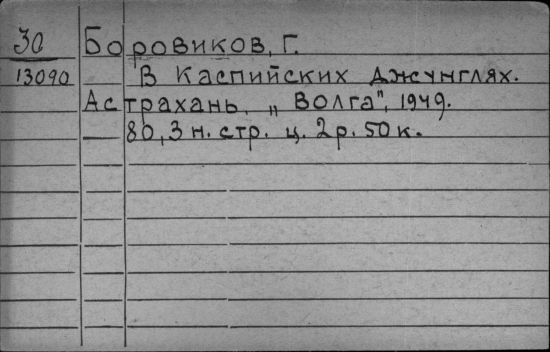 30 Боровиков, Г.
13090 В Каспийских джунглях.
Астрахань, „Волга", 1949.
— 80, 3 н. стр. ц. 2 р. 50 к.